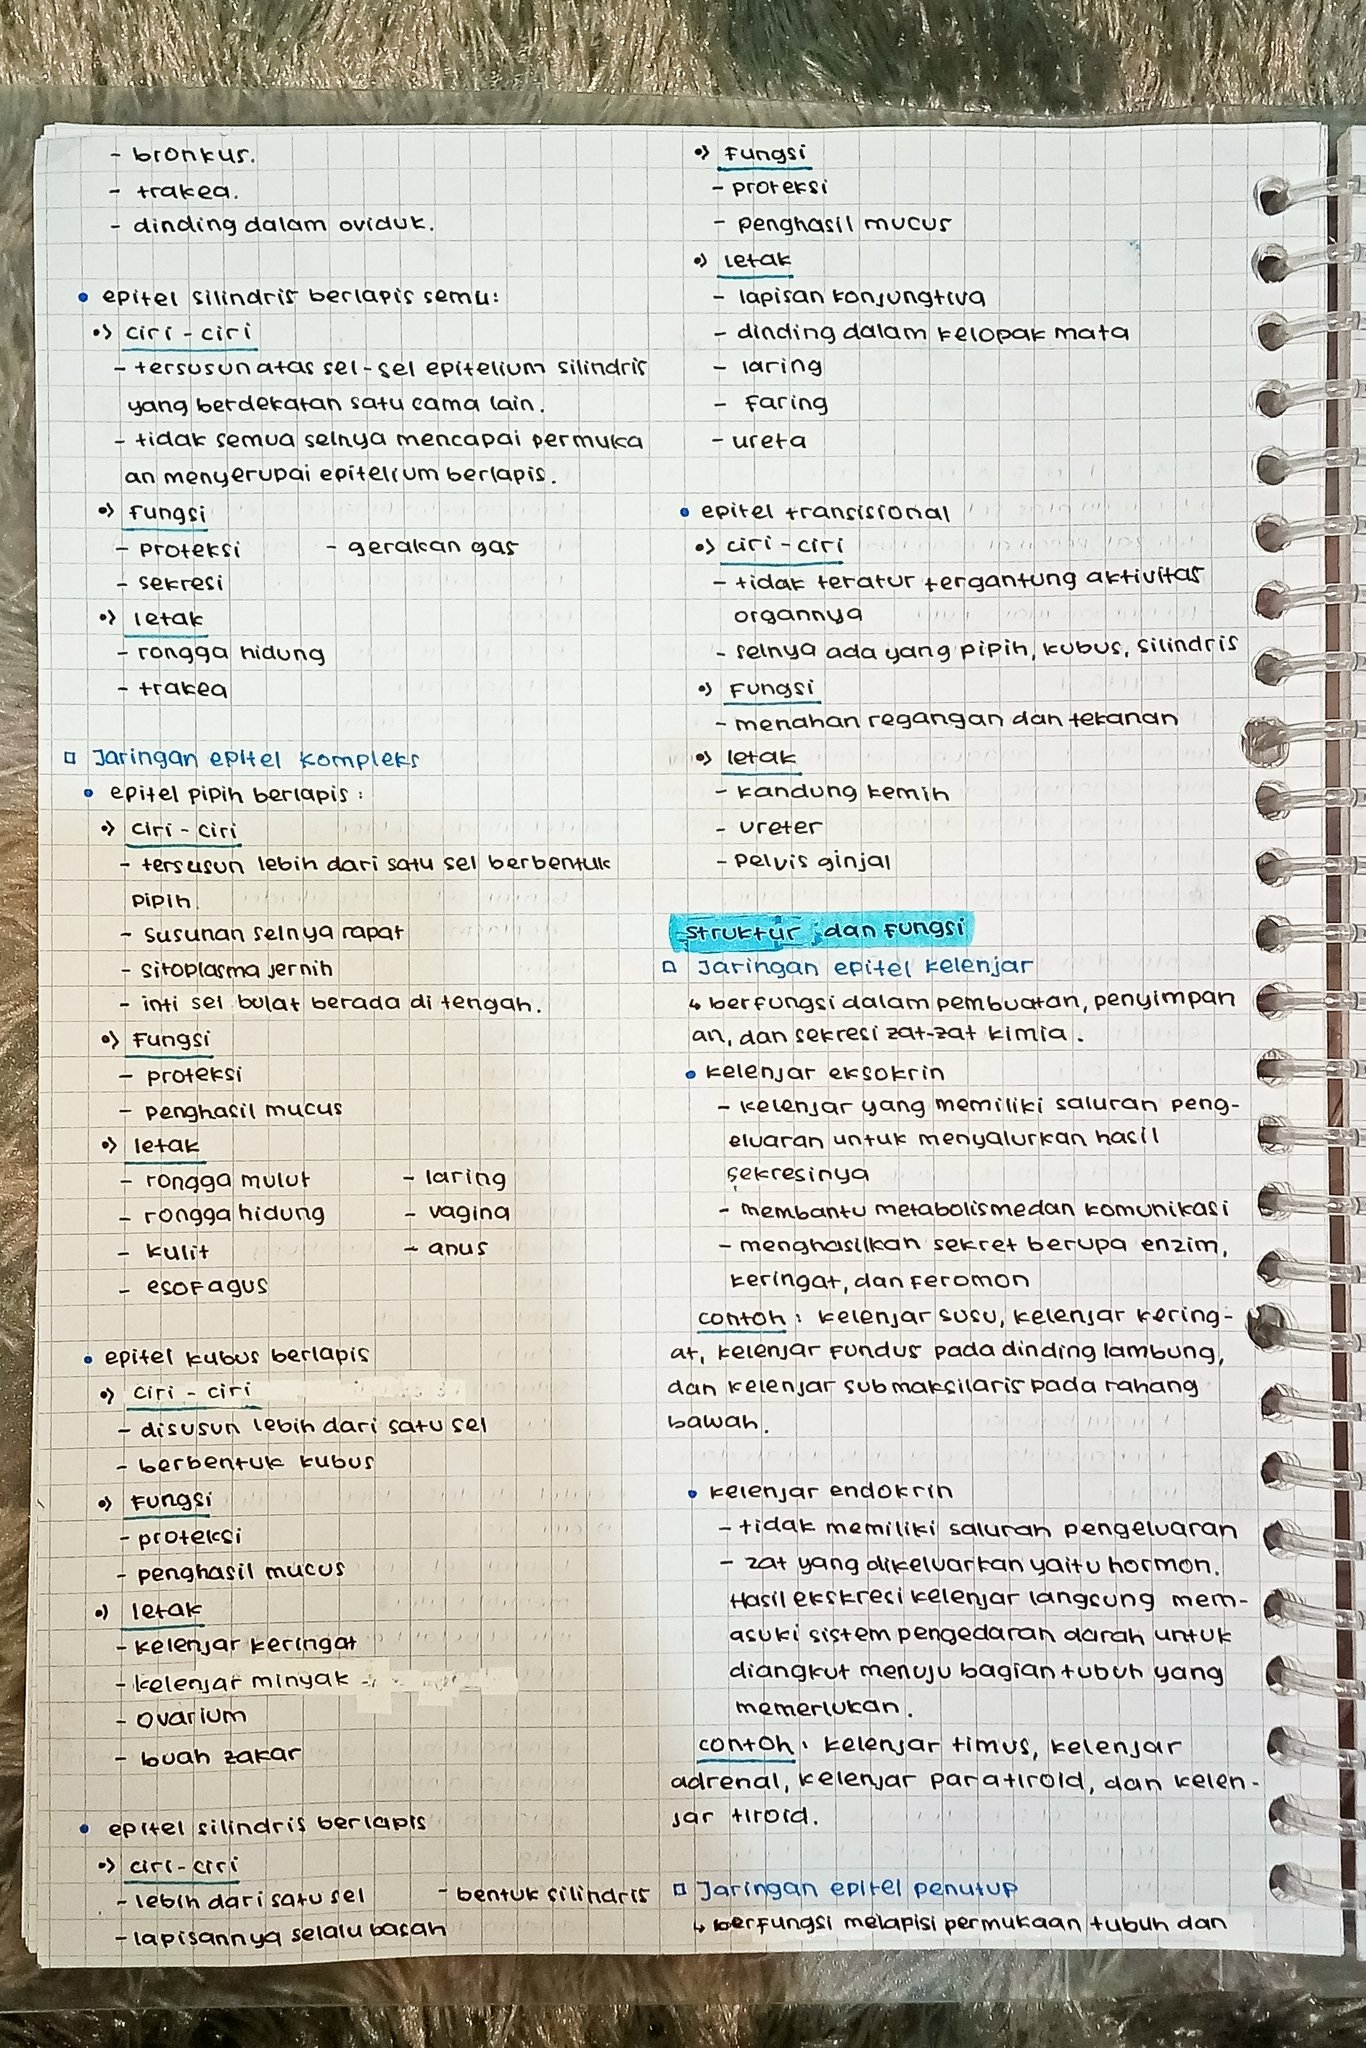 - bronkus.
- trakea.
- dinding dalam oviduk.
• epitel silindris berlapis semu:
•> ciri - ciri
- tersusun atas sel-sel epitelium silindris
yang berdekatan satu cama lain.
- tidak semua selnya mencapai permuka
an menyerupai epitelium berlapis.
•> Fungsi
- proteksi - gerakan gas
- sekresi
•> letak
- rongga hidung
- trakea
□ Jaringan epitel kompleks
• epitel pipih berlapis :
•> ciri - ciri
- tersusun lebih dari satu sel berbentuk
pipih.
- susunan selnya rapat
- sitoplasma jernih
- inti sel bulat berada di tengah.
•> Fungsi
- proteksi
- penghasil mucus
•> letak
- rongga mulut - laring
- rongga hidung - vagina
- kulit - anus
- esofagus
• epitel kubus berlapis
•> ciri - ciri
- disusun lebih dari satu sel
- berbentuk kubus
•> Fungsi
- proteksi
- penghasil mucus
•> letak
- kelenjar keringat
- kelenjar minyak
- ovarium
- buah zakar
• epitel silindris berlapis
•> ciri - ciri
- lebih dari satu sel - bentuk silindris
- lapisannya selalu basah
•> Fungsi
- proteksi
- penghasil mucus
•> letak
- lapisan konjungtiva
- dinding dalam kelopak mata
- laring
- faring
- ureta
• epitel transisional
•> ciri - ciri
- tidak teratur tergantung aktivitas
organnya
- selnya ada yang pipih, kubus, silindris
•> Fungsi
- menahan regangan dan tekanan
•> letak
- kandung kemih
- ureter
- pelvis ginjal
struktur dan fungsi
□ Jaringan epitel kelenjar
↳ berfungsi dalam pembuatan, penyimpan
an, dan sekresi zat-zat kimia.
• kelenjar eksokrin
- kelenjar yang memiliki saluran peng-
eluaran untuk menyalurkan hasil
sekresinya
- membantu metabolisme dan komunikasi
- menghasilkan sekret berupa enzim,
keringat, dan feromon
contoh : kelenjar susu, kelenjar kering-
at, kelenjar fundus pada dinding lambung,
dan kelenjar submaksilaris pada rahang
bawah.
• kelenjar endokrin
- tidak memiliki saluran pengeluaran
- zat yang dikeluarkan yaitu hormon.
Hasil ekskresi kelenjar langsung mem-
asuki sistem pengedaran darah untuk
diangkut menuju bagian tubuh yang
memerlukan.
contoh : kelenjar timus, kelenjar
adrenal, kelenjar paratiroid, dan kelen-
jar tiroid.
□ Jaringan epitel penutup
↳ berfungsi melapisi permukaan tubuh dan